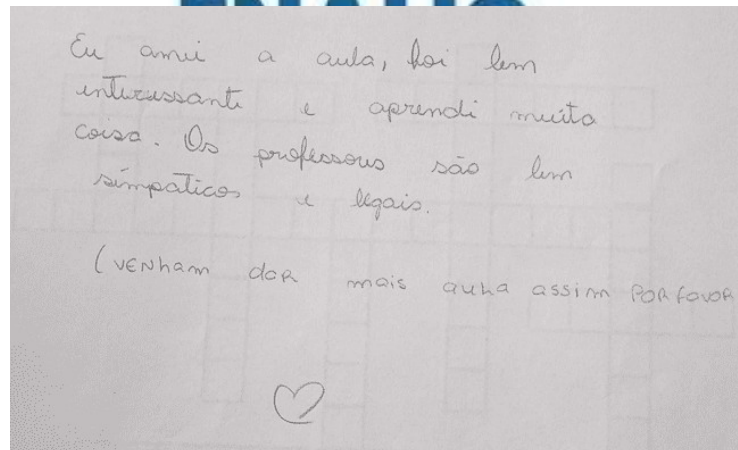 Eu amei a aula, foi bem
interessante e aprendi muita
coisa. Os professores são bem
simpaticos e legais.
(VENham daR mais aula assim PoR favoR